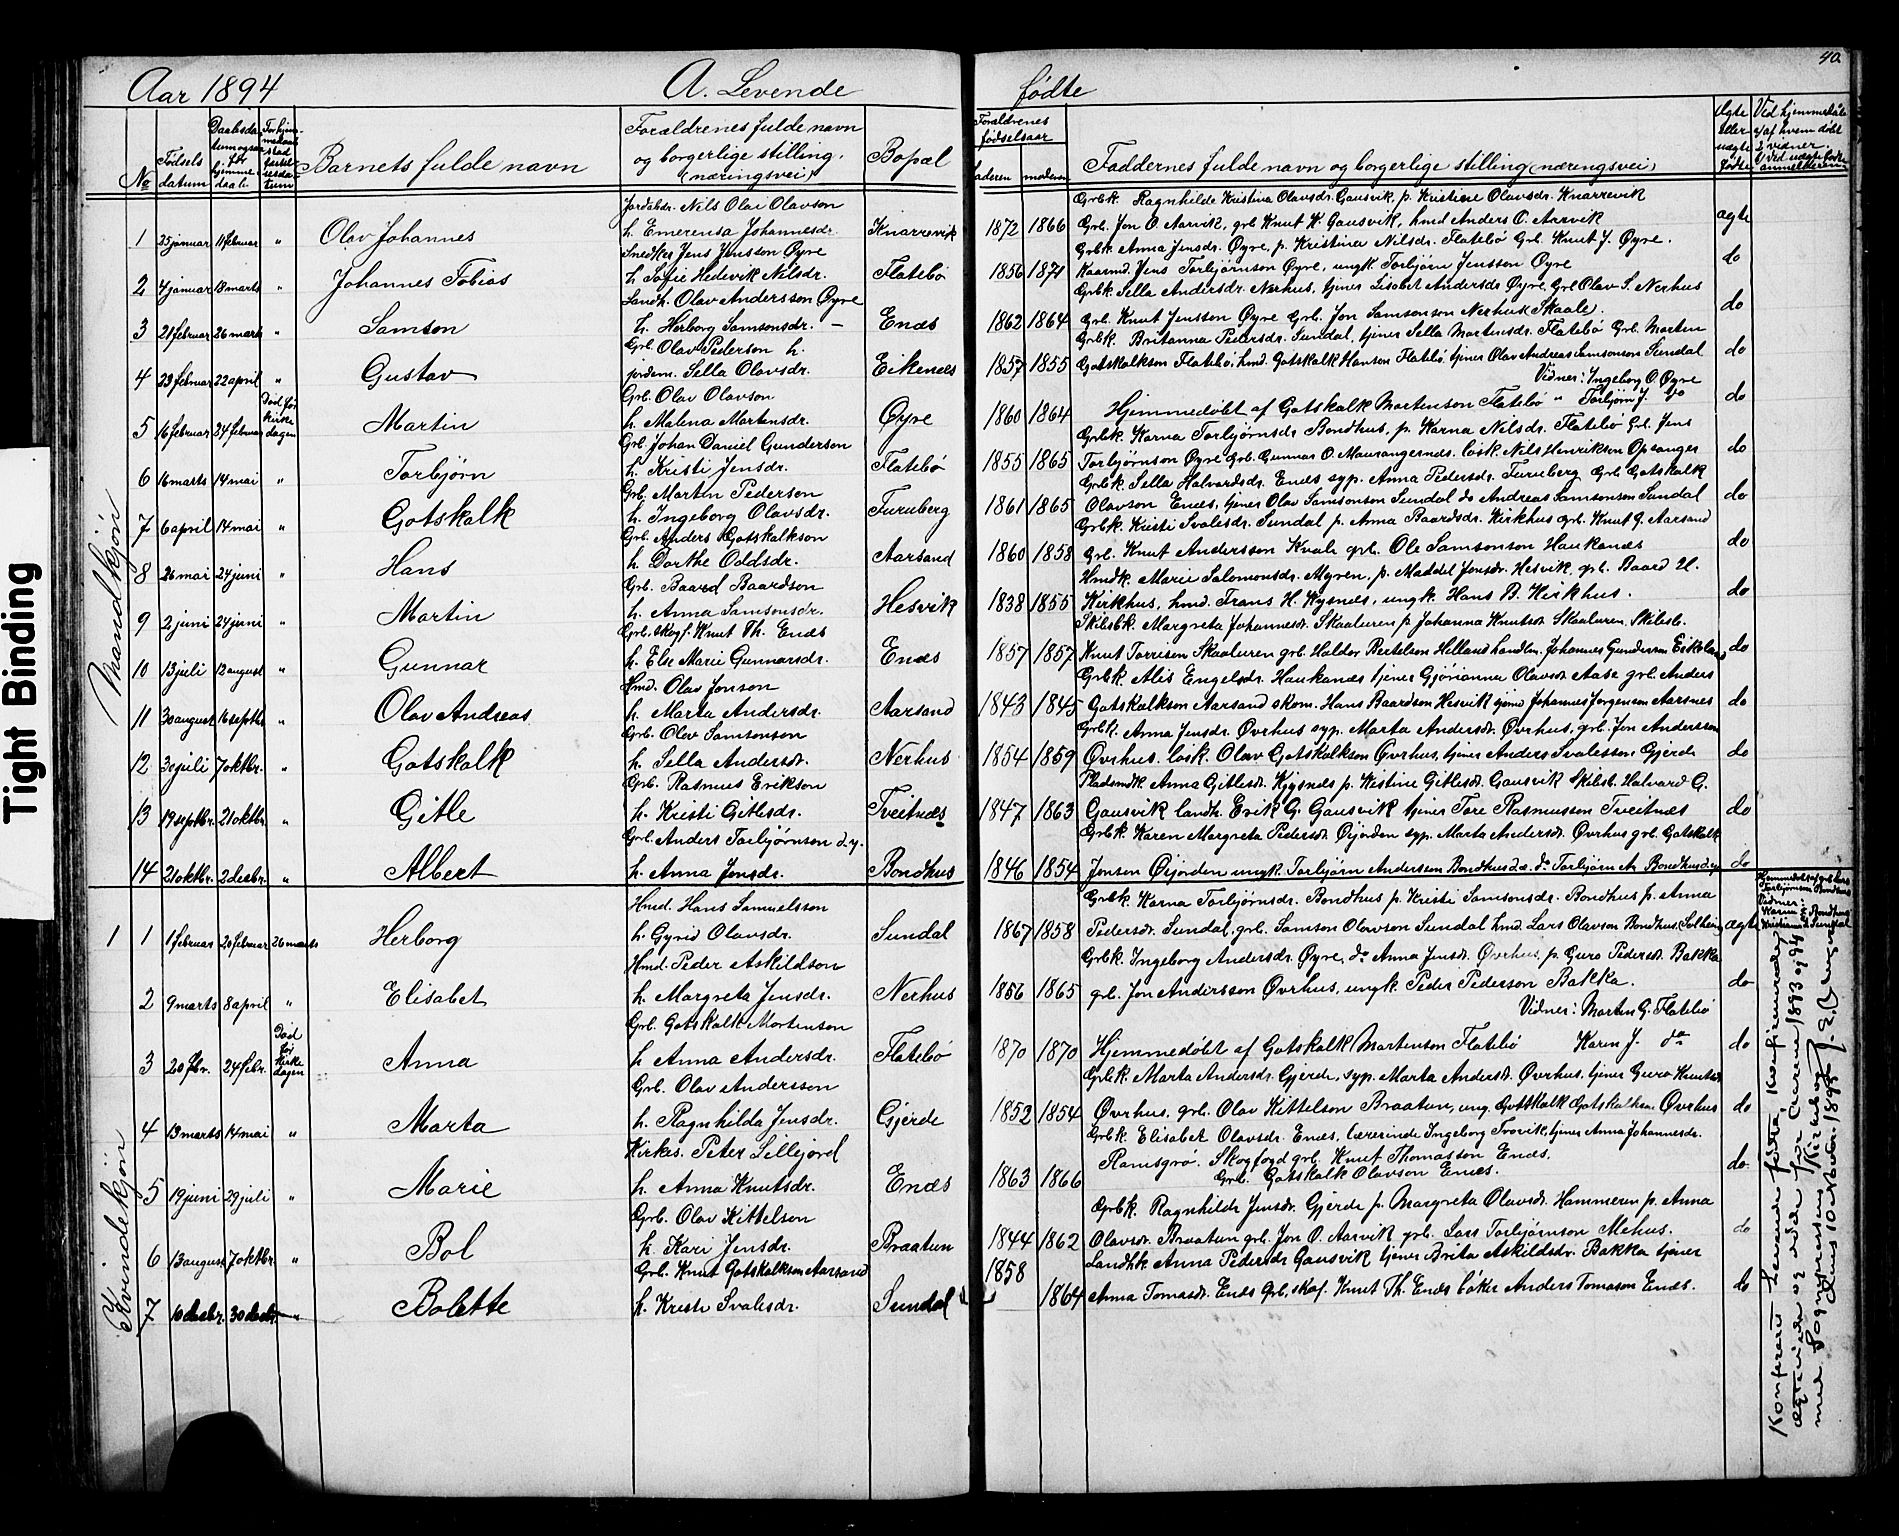 40
Aar 1894
A. Levende
fødte
Tight Binding
No
Fødsels datum
Barnets fulde navn
Forældrenes fulde navn
og borgerlige stilling.
(næringsvei)
Bopæl
Forældrenes
fødselsaar
faderen
moderen
Faddernes fulde navn og borgerlige stilling (næringsvei)
Ægte
eller
uægte
fødte
Mandkjøn
Jordabr. Nils Olai Olavson
Grbk. Ragnhilde Kristina Olavsdr. Gausvik, p. Kristine Olavsdr. Knarrevik
1 25 januar 11 februar " Olav Johannes h. Emerensa Johannesdr. Knarrevik 1872 1866 Grb. Jon O. Aarvik, grb Knut K. Gausvik, hmd Anders O. Aarvik ægte
Snedker Jens Jensson Øyre
Grbk. Anna Jensdr. Øyre, p. Kristina Nilsdr. Flatebø Grb. Knut J. Øyre.
2 4 januar 18 marts " Johannes Tobias h. Sofie Hedevik Nilsdr. Flatebø 1856 1871 Kaarmd. Jens Torbjørnson Øyre, ungk. Torbjørn Jensson Øyre do
Landh. Olav Andersson Øyre
Grbk. Sella Andersdr. Nerhus, tjener Lisabet Andersdr Øyre, Grb Olav S. Nerhus
3 21 februar 26 marts " Samson h. Herborg Samsonsdr. — Enæs 1862 1864 Grb. Knut Jensson Øyre Grb. Jon Samsonson Nerhus Skaale. do
Grb. Olav Pederson h.
Grbk. Britanna Pedersdr. Sundal, tjener Sella Martinsdr. Flatebø Grb. Morten
4 29 februar 22 april " Gustav jordem. Sella Olavsdr. Eikenæs 1857 1855 Gotskalkson Flatebø, hmd. Gotskalk Hanson Flatebø, tjener Olav Andreas Samsonson Sundal do
Grb. Olav Olavson
Vidner: Ingeborg O. Øyre
5 16 februar 24 februar Død før kirkedagen Martin h. Malena Martensdr. Øyre 1860 1864 Hjemmedøbt af Gotskalk Mortenson Flatebø " Torbjørn J. do do
Grb. Johan Daniel Gunderson
Grbk. Karna Torbjørnsdr Bondhus, p. Karna Nilsdr. Flatebø Grb. Jens
6 16 marts 14 mai " Torbjørn h. Kristi Jensdr. Flatebø 1855 1865 Torbjørnson Øyre Grb. Gunnar O. Mauranger­næs. løsk. Nils Henrikson Opsanger do
Grb. Morten Pederson
Grbk. Sella Halvardsdr. Enæs syp. Anna Pedersdr. Furuberg Grb Gotskalk
7 6 april 14 mai " Gotskalk h. Ingeborg Olavsdr. Furuberg 1861 1865 Olavson Enæs, tjener Olav Samsonson Sundal do Andreas Samsonson Sundal do
Grb. Anders Gotskalkson
Grbk. Kristi Svalesdr. Sundal p. Anna Baardsdr. Kirkhus grb. Knut G. Aarsand
8 26 mai 24 juni " Hans h. Dorthe Oddsdr. Aarsand 1860 1858 Grb. Knut Andersson Kvale grb. Ole Samsonson Haukanæs do
Grb. Baard Baardson
Hmdk. Marie Salomonsdr. Myren, p. Maddel Jonsdr. Hesvik, grb. Baard H.
9 2 juni 24 juni " Martin h. Anna Samsonsdr. Hesvik 1838 1855 Kirkhus, hmd. Frans H. Kysnæs, ungk. Hans B. Kirkhus. do
Grb. skogf. Knut Th. Enæs
Skilsbk. Margreta Johannesdr. Skaaluren p. Johanna Knutsdr Skaaluren, Skilsb.
10 13 juli 12 august " Gunnar h. Else Marie Gunnarsdr. Enæs 1857 1857 Knut Torrison Skaaluren grb. Haldor Bertelsen Helland handlm. Johannes Gunderson Eikeland do
Hmd. Olav Jonson
Grbk. Alis Engelsdr. Haukanæs tjener Gjørianna Olavsdr Aase grb. Anders
11 30 august 16 septbr " Olav Andreas h. Marta Andersdr. Aarsand 1843 1845 Gotskalkson Aarsand skom. Hans Baardson Hesvik tjener Johannes Jørgenson Aarsnes do
Grb. Olav Samsonson
Grbk. Anna Jensdr. Øvrhus syp. Marta Andersdr. Øvrhus, grb. Jon Andersson
12 30 juli 7 oktbr. " Gotskalk h. Sella Andersdr. Nerhus 1854 1859 Øvrhus. løsk. Olav Gotskalkson Øvrhus, tjener Anders Svalesson Gjerde do
Grb. Rasmus Erikson
Pladsmdk Anna Gitlesdr. Kysnæs p. Kristine Gitlesdr. Gausvik Skilsb. Halvard G.
13 19 septbr. 21 oktbr. " Gitle h. Kristi Gitlesdr. Tveitnæs 1847 1863 Gausvik landh. Erik G. Gausvik tjener Tore Rasmusson Tveitnæs do
Grb. Anders Torbjørnson d.y.
Grbk. Karen Margreta Pedersdr. Øijorden syp. Marta Andersdr. Øvrhus grb. Gotskalk
14 21 oktbr. 2 decbr. " Albert h. Anna Jensdr. Bondhus 1846 1854 Jonson Øijorden ungk. Torbjørn Anderson Bondhus d.æ. do Torbjørn A. Bondhus d.y. do
Kvindekjøn
Hmd. Hans Samuelsson
Grbk. Karna Torbjørnsdr. Bondhus p. Kristi Samsonsdr. Bondhus p. Anna
1 1 1 februar 26 februar 26 marts Herborg h. Gyrid Olavsdr. Sundal 1867 1858 Pedersdr. Sundal, grb. Samson Olavson Sundal hmd. Lars Olavson Bondhus (Solheim) ægte
Hmd. Peder Askildson
Grbk. Ingeborg Andersdr. Øyre, do Anna Jensdr. Øvrhus, p. Guro Pedersdr. Bakka
2 9 marts 8 april " Elisabet h. Margreta Jensdr. Nerhus 1856 1865 grb. Jon Andersson Øvrhus, ungk. Peder Pederson Bakka. do
Grb. Gotskalk Mortenson
Vidner: Morten G. Flatebø
3 20 febr. 24 febr. Død før kirkedagen Anna h. Anna Andersdr. Flatebø 1870 1870 Hjemmedøbt af Gotskalk Mortenson Flatebø Karen J. do do
Grb. Olav Andersson
Grbk. Marta Andersdr. Gjerde, syp. Marta Andersdr. Øvrhus, tjener Guro Knutsdr
4 13 marts 14 mai " Marta h. Ragnhilda Jensdr. Gjerde 1852 1854 Øvrhus, grb. Olav Kittelson Braatun, ung. Gotskalk Gotskalkson Øvrhus do
Kirkes. Peter Lillejord
Grbk. Elisabet Olavsdr. Enæs, lærerinde Ingeborg Trovik, tjener Anna Johannesdr.
Ramsgrø. Skogfogd grb. Knut Thomasson Enæs.
5 19 juni 29 juli " Marie h. Anna Knutsdr. Enæs 1863 1866 Grb. Gotskalk Olavson Enæs. do
Grb. Olav Kittelson
Grbk. Ragnhilde Jensdr. Gjerde p. Margreta Olavsdr. Hammeren p. Anna
6 13 august 7 oktbr. " Bol h. Kari Jensdr. Braatun 1844 1862 Olavsdr. Braatun grb. Jon O. Aarvik grb. Lars Torbjørnson Mehus. do
Grb. Knut Gotskalkson Aarsand
Landhk Anna Pedersdr Gausvik tjener Brita Askildsdr. Bakka tjener
7 10 decbr. 30 decbr. " Bolette h. Kristi Svalesdr. Sundal 1858 1864 Anna Tomasdr. Enæs Grb. skof. Knut Th. Enæs bøker Anders Tomason Enæs. do
Konfereret Levende fødte, Konfirmerede,
ægteviede og døde for aarene 1893 og 94
med Sogneprestens Kirkebog.